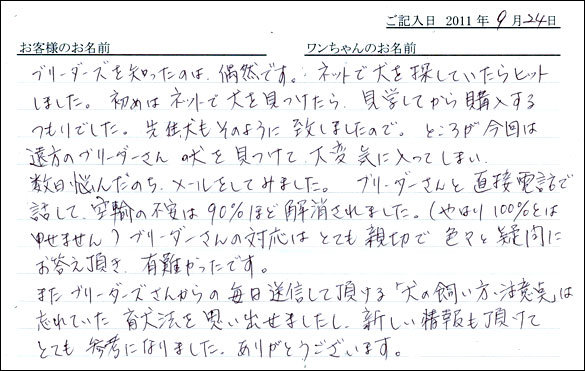 ご記入日 2011年9月24日
お客様のお名前 ワンちゃんのお名前
ブリーダーズを知ったのは、偶然です。ネットで犬を探していたらヒット
しました。初めはネットで犬を見つけたら、見学してから購入する
つもりでした。先住犬もそのように致しましたので。ところが今回は
遠方のブリーダーさんの犬を見つけて、大変気に入ってしまい、
数日悩んだのち、メールをしてみました。ブリーダーさんと直接電話で
話して、空輸の不安は90%ほど解消されました。(やはり100%とは
申せません)ブリーダーさんの対応はとても親切で色々と疑問に
お答え頂き、有難かったです。
またブリーダーズさんからの毎日送信して頂ける「犬の飼い方・注意点」は
忘れていた育犬法を思い出せましたし、新しい情報も頂けて
とても参考になりました。ありがとうございます。